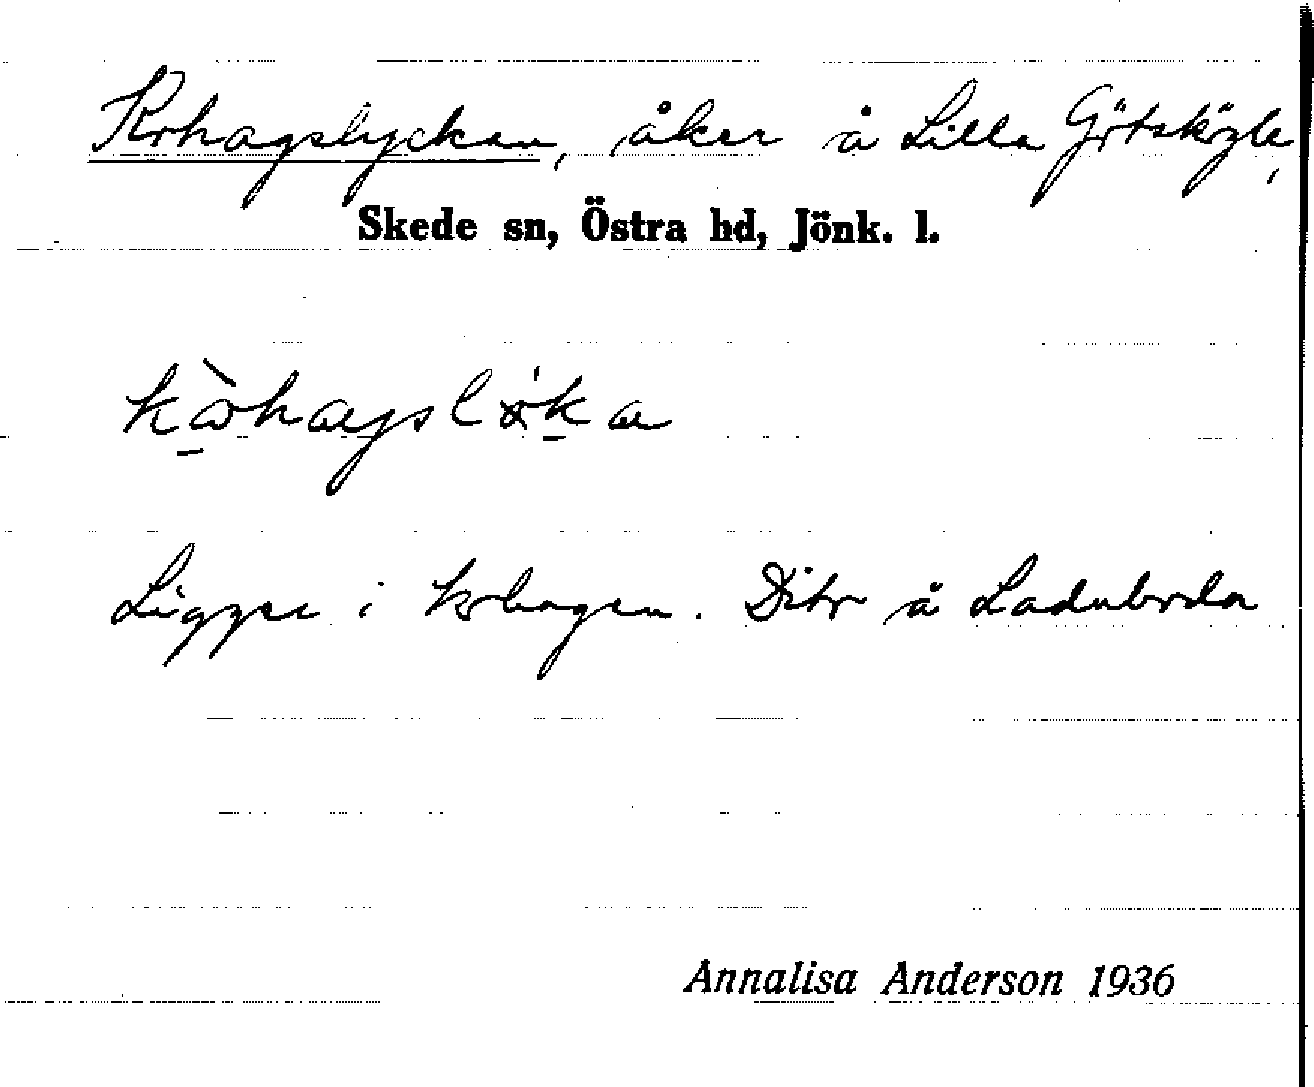 Kohagslyckan, åker å Lilla Götskögle,
Skede sn, Östra hd, Jönk. l.
Ligger i kohagen. Dito å Laduborda
Annalisa Anderson 1936